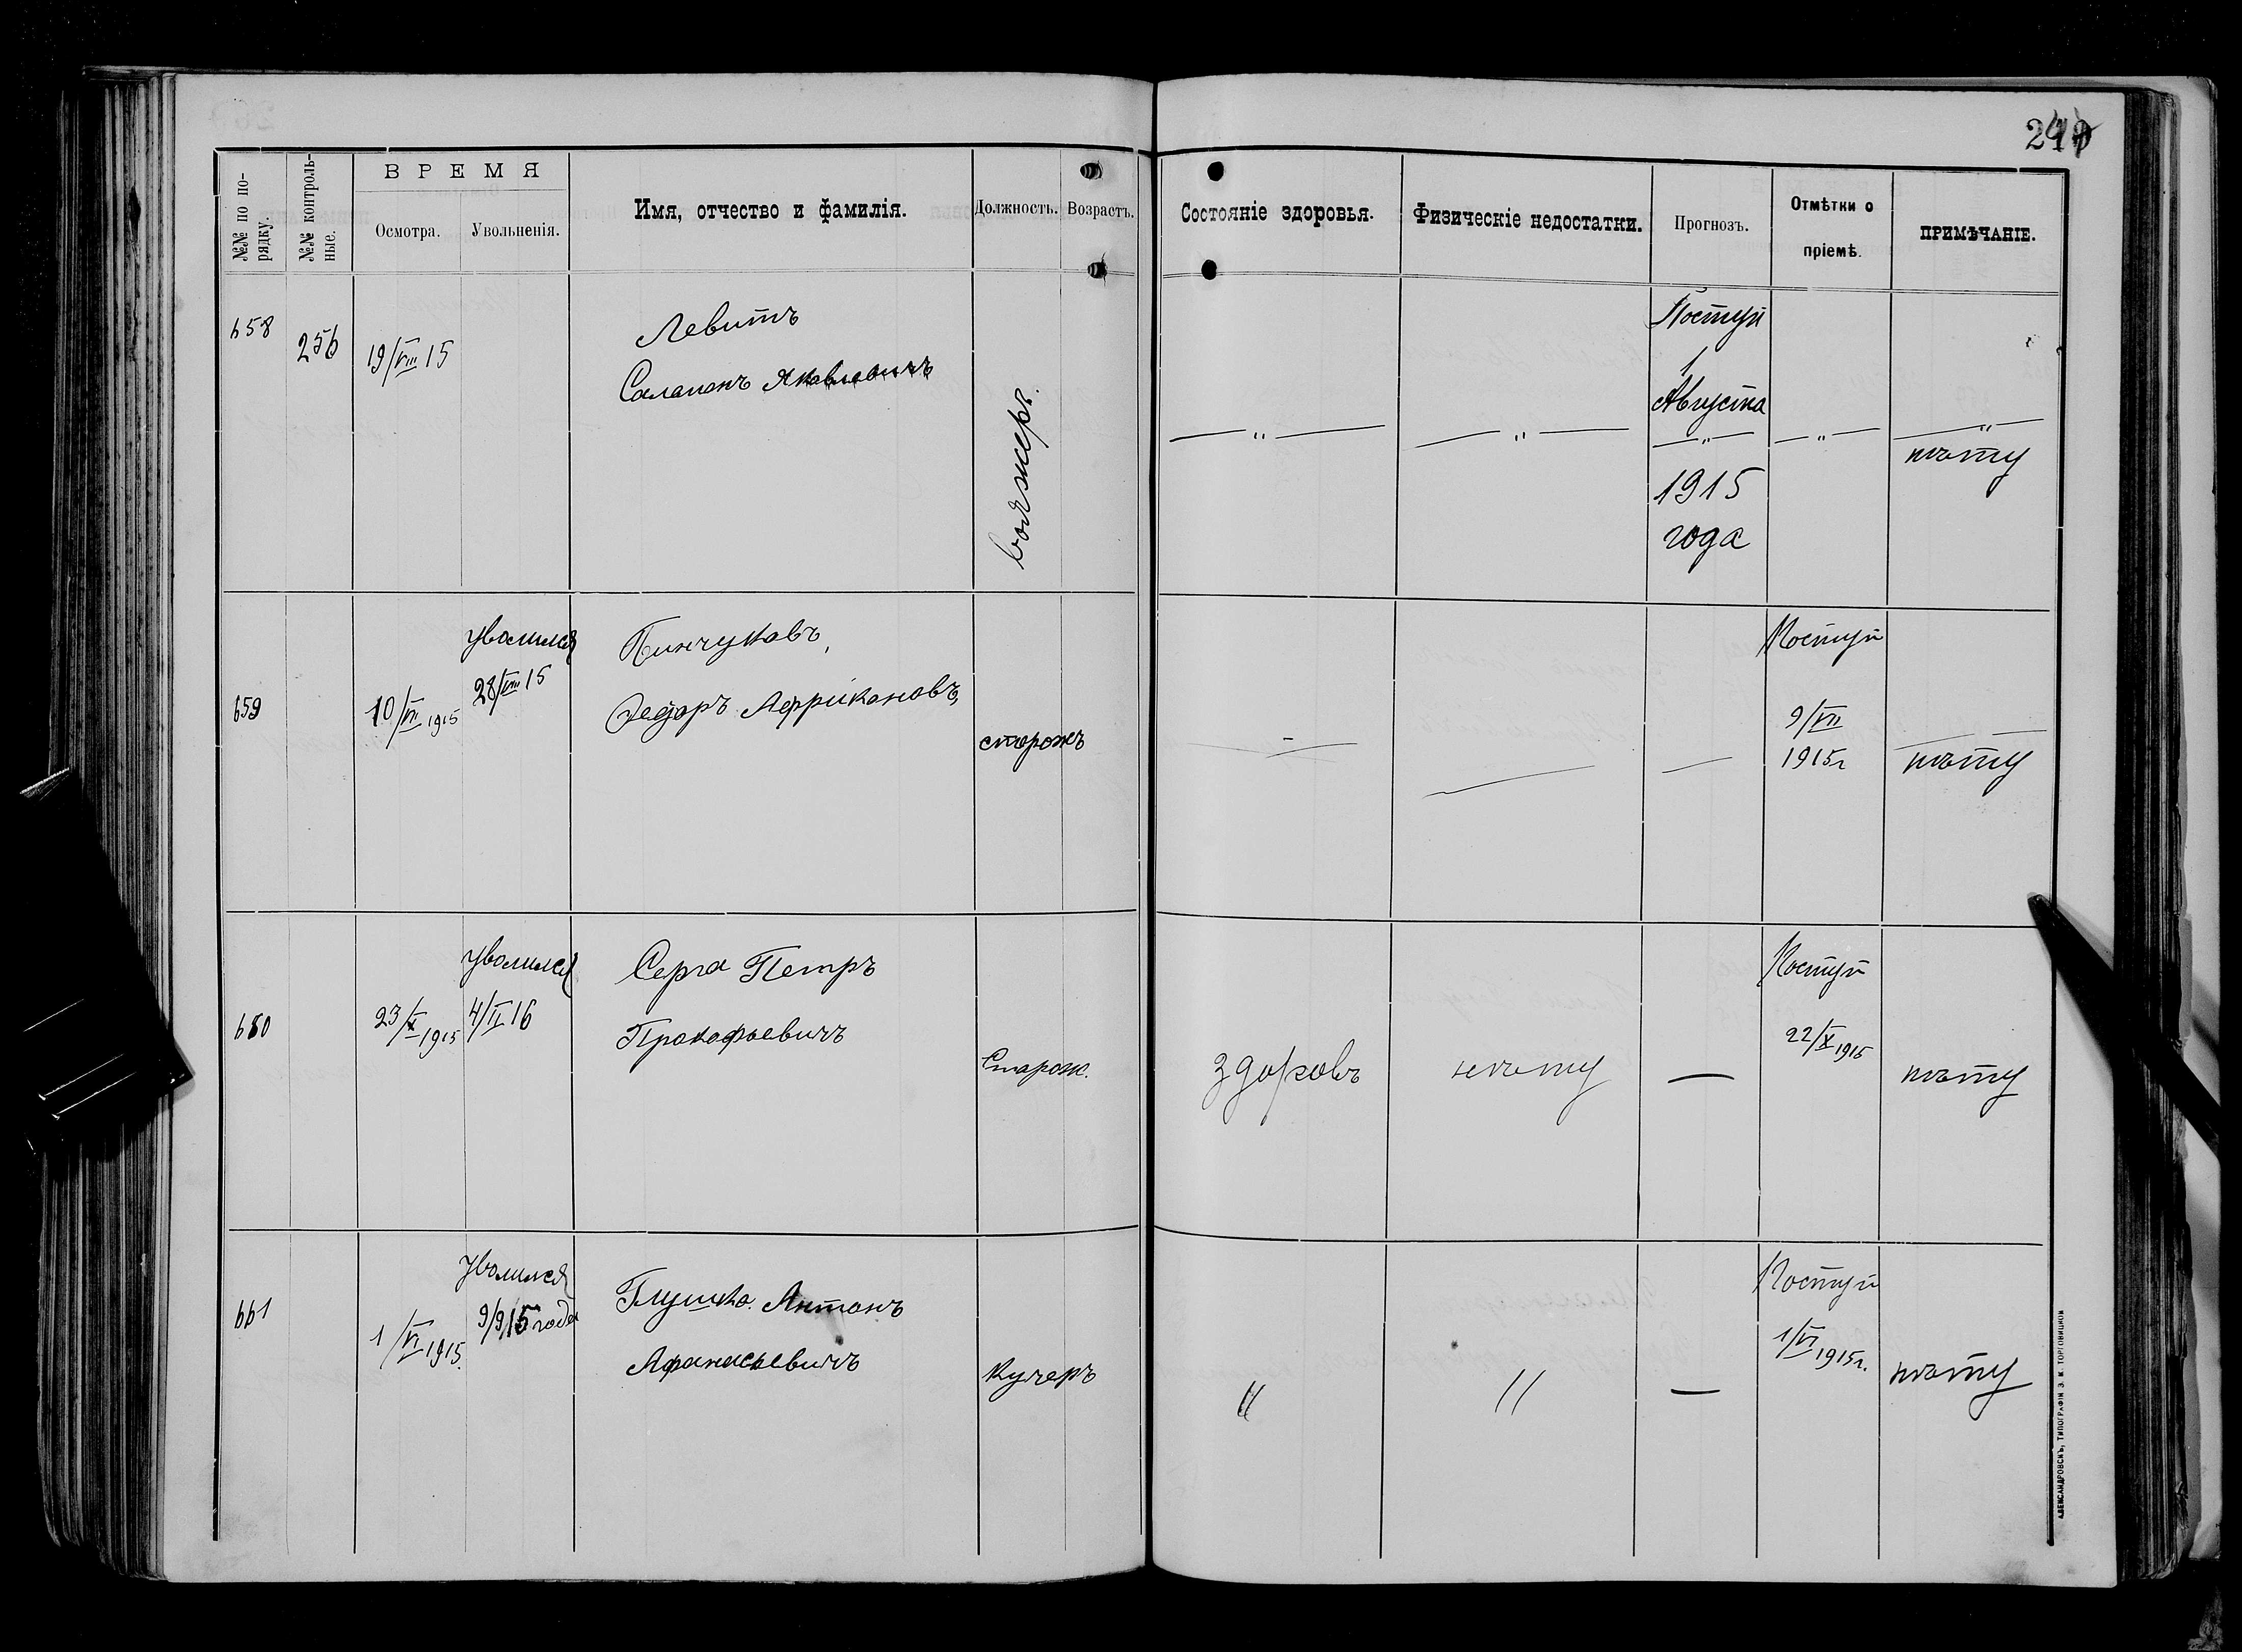 241
ВРЕМЯ
№№ по по-
рядку.
№№ контроль-
ные.
Осмотра.
Увольненія.
Имя, отчество и фамилія.
Должность.
Возрастъ.
Состояніе здоровья.
Физическіе недостатки.
Прогнозъ.
Отмѣтки о
пріемѣ.
ПРИМѢЧАНІЕ.
658
256
19/VIII 15
Левитъ
Саламонъ Яковлевичъ
Поступ
1
Августа
— " —
— " —
— " —
— " —
— " —
нѣту
1915
года
659
10/VII 1915
уволился
28/VIII 15
Пинчуковъ,
Федоръ Африкановъ,
сторожъ
—
—
—
Поступ
9/VII
1915г
нѣту
660
23/X 1915
уволился
4/II 16
Серга Петръ
Прокофьевичъ
Сторож.
здоровъ
нѣту
—
Поступ
22/X 1915
нѣту
661
1/VI 1915.
Уволился
9/9 15 года
Глушко. Антонъ
Афанасьевичъ
Кучеръ
"
"
—
Поступ
1/VI 1915г.
нѣту
АЛЕКСАНДРОВСКЪ, ТИПОГРАФІИ З. И. ТОРГОВИЦКІЙ